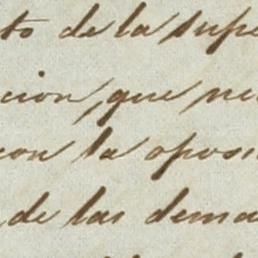 to de la supe
cion, que ne
con la oposi
de las dema